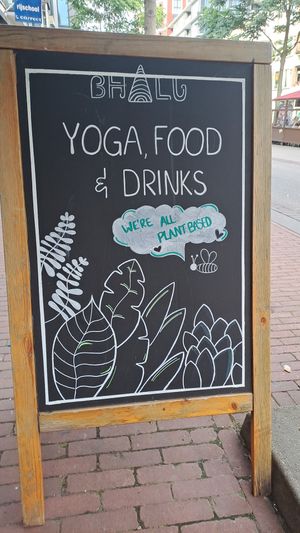 rijschool
& correct
BHALU
YOGA, FOOD
& DRINKS
WE'RE ALL
PLANT BASED